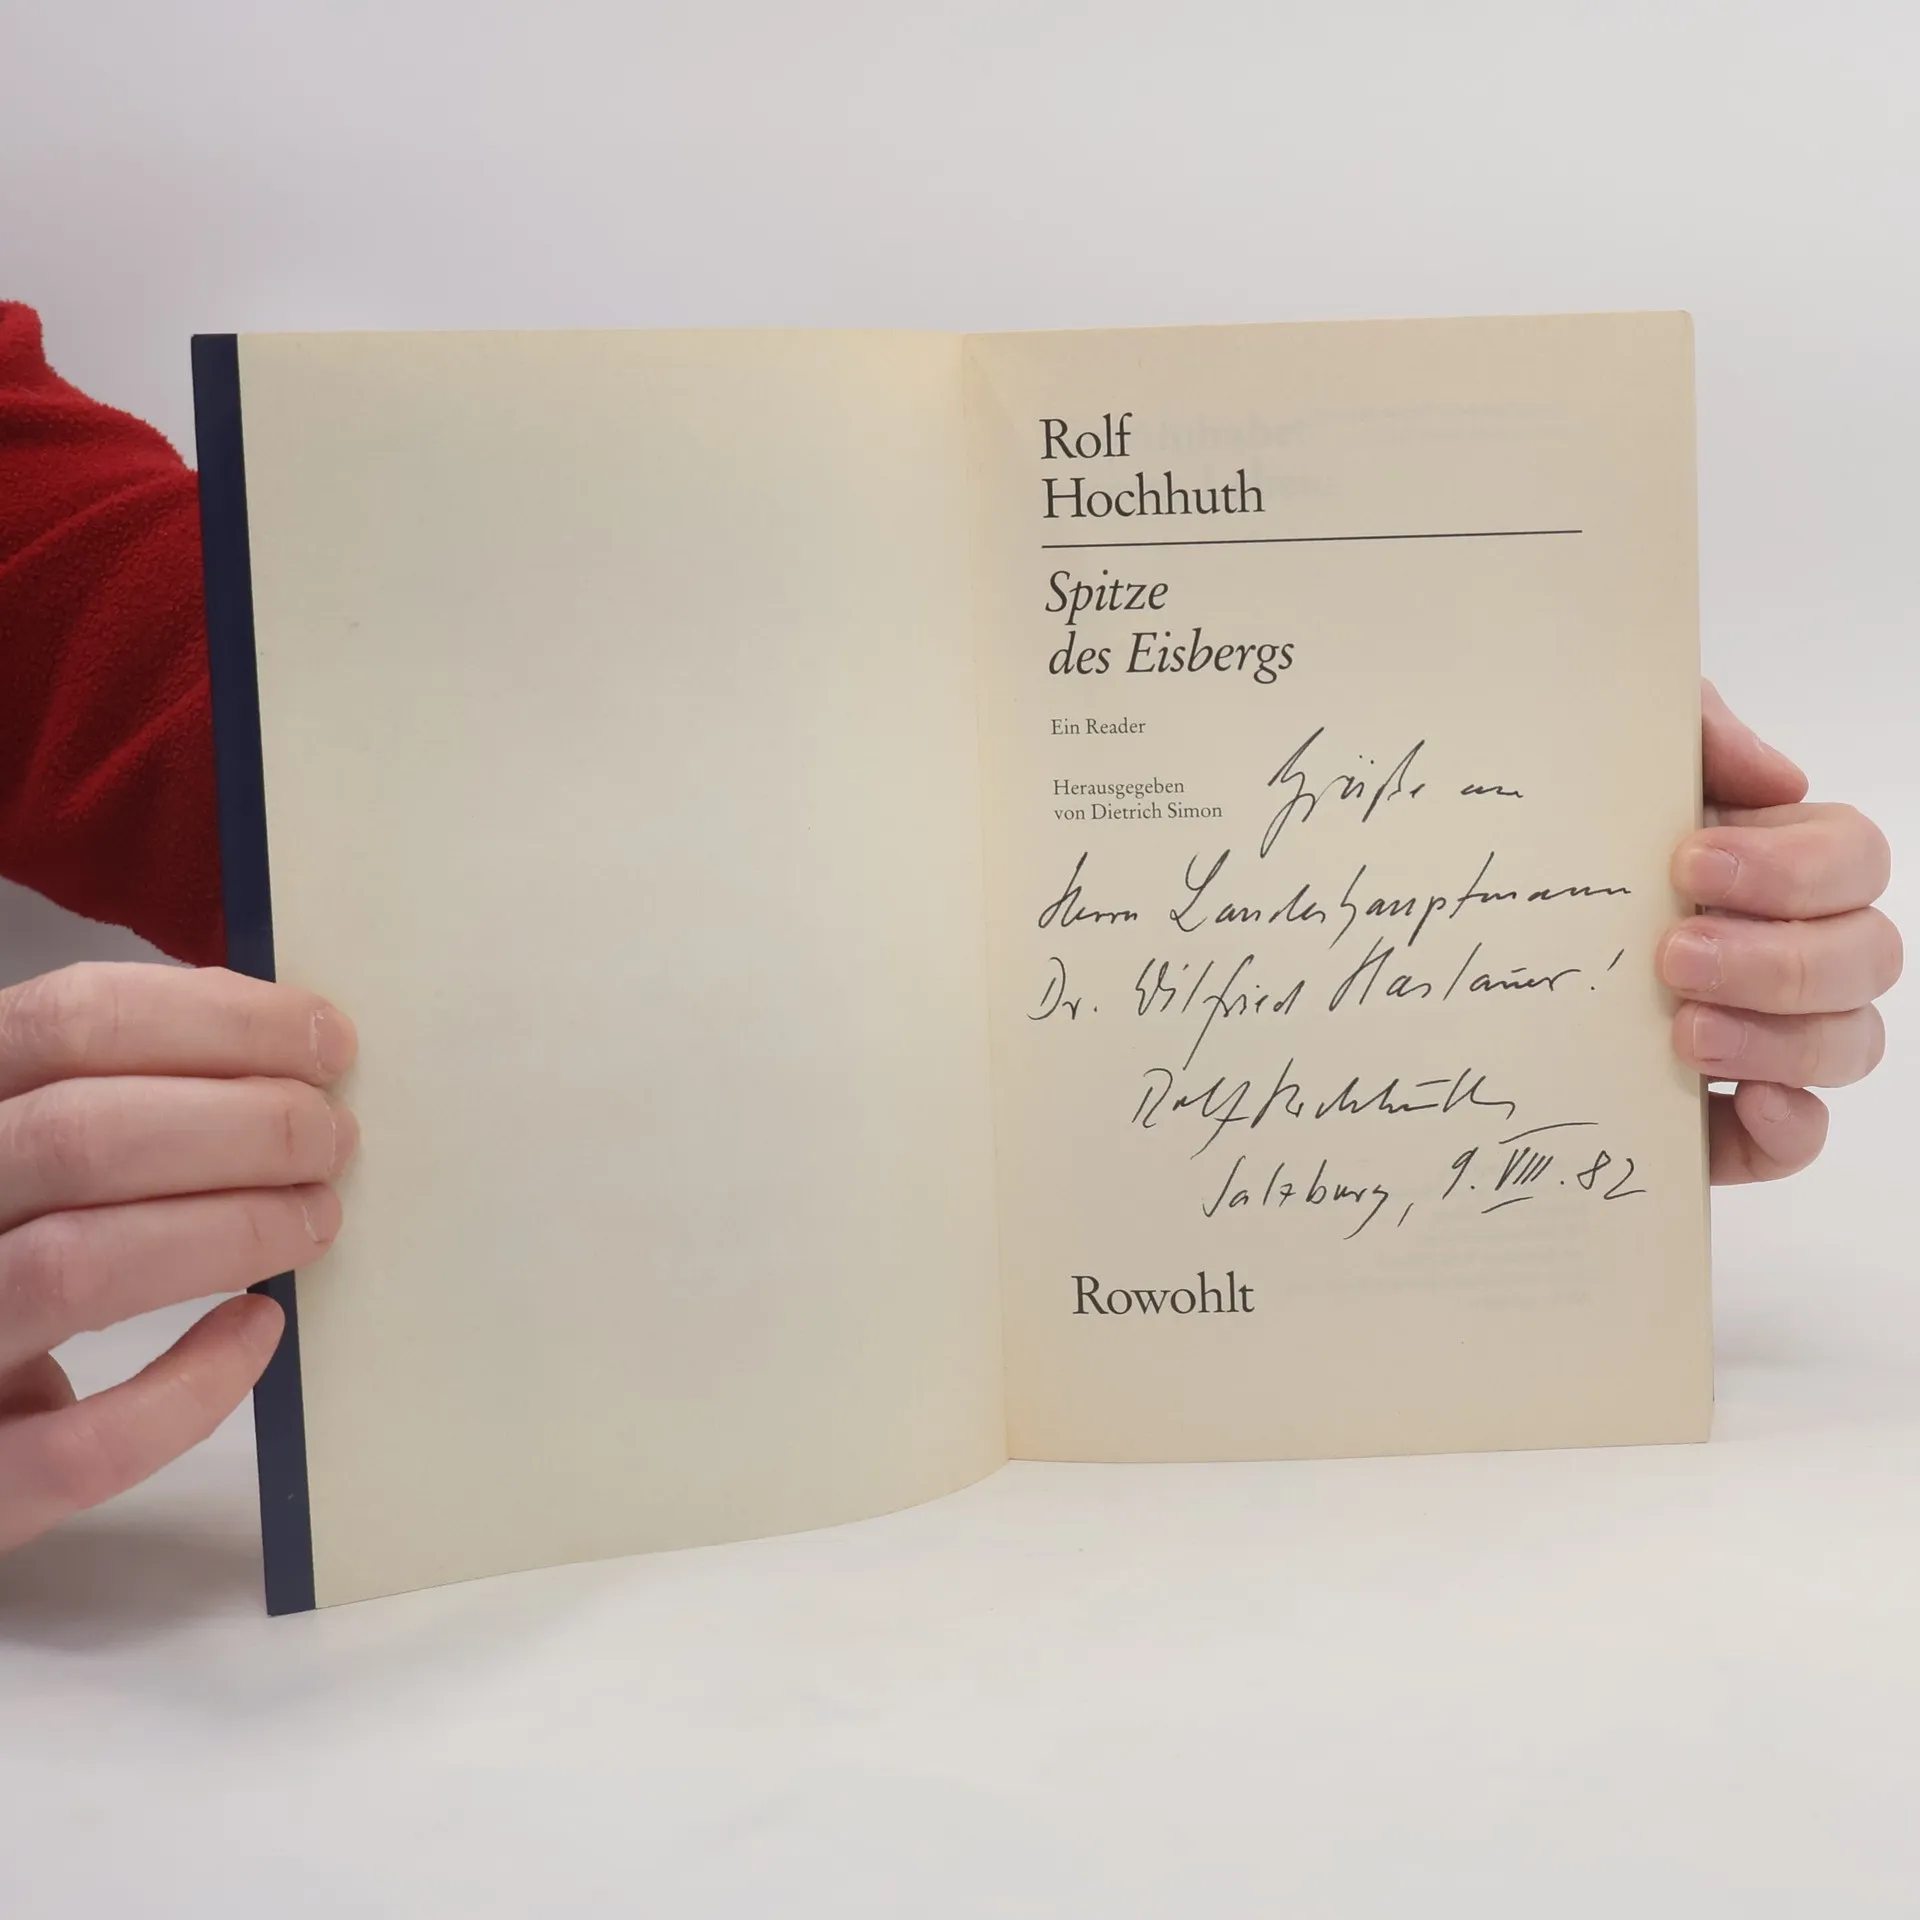 Rolf
Hochhuth
Spitze
des Eisbergs
Ein Reader
Herausgegeben
von Dietrich Simon
Grüße an
Herrn Landeshauptmann
Dr. Wilfried Haslauer!
Rolf Hochhuth
Salzburg, 9. VIII. 82
Rowohlt